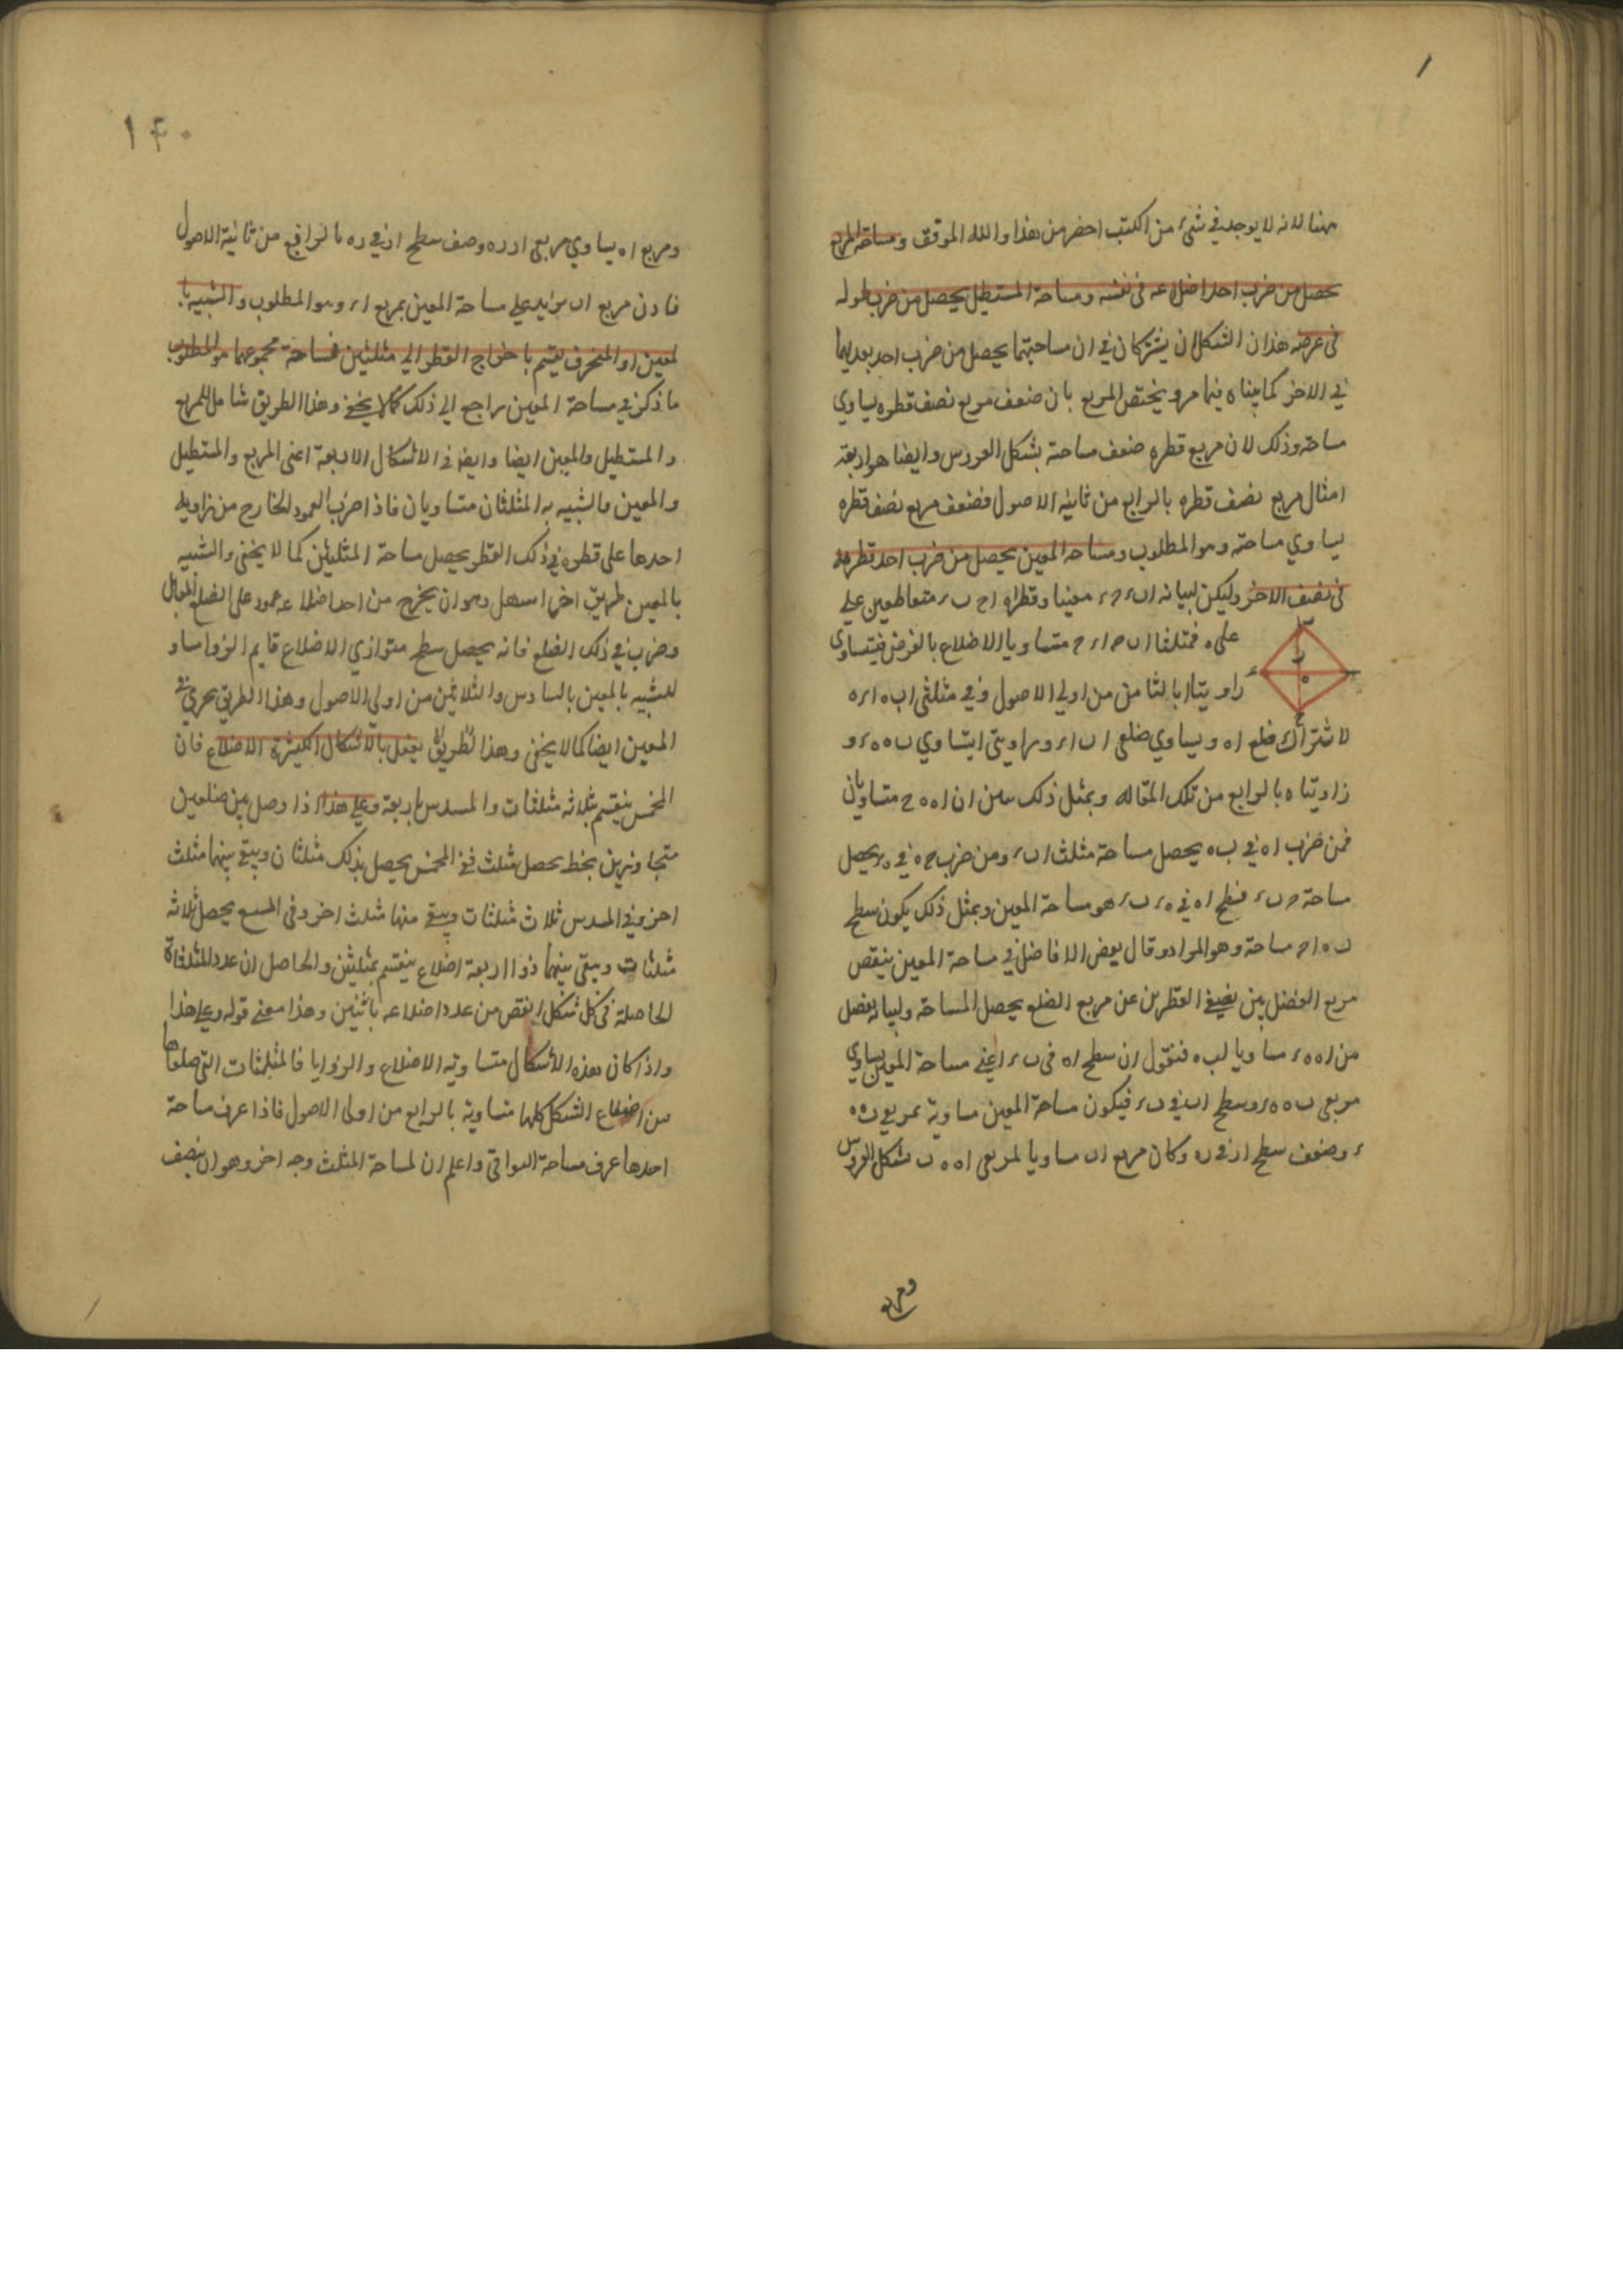 ههنا لانه لا يوجد في شيء من الكتب احضر من هذا والله الموفق ومساحة المربع
يحصل من ضرب احد اضلاعه في نفسه ومساحة المستطيل يحصل من ضرب طوله
في عرضه هذان الشكلان يشتركان في ان مساحتهما يحصل من ضرب احد بعديهما
في الاخر كما بيناه فيما مر ويختص المربع بان ضعف مربع نصف قطره يساوي
مساحته وذلك لان مربع قطره ضعف مساحته بشكل العروس وايضا هو اربعة
امثال مربع نصف قطره بالرابع من ثانية الاصول فضعف مربع نصف قطره
يساوي مساحته وهو المطلوب ومساحة المعين يحصل من ضرب احد قطريه
في نصف الاخر وليكن لبيانه ا ب ح ء معينا وقطراه ا ح ب ء متقاطعين على
على ه فمثلثا ا ب ح ا ء ح متساويا الاضلاع بالفرض فيتساوى
زاويتا ا بالثامن من اولى الاصول وفي مثلثى ا ب ه ا ء ه
لاشتراك ضلع ا ه ويساوي ضلعى ا ب ا ء وزاويتى ا يتساوي ب ه ه ء و
زاويتا ه بالرابع من تلك المقاله وبمثل ذلك ان ا ه ه ح متساويان
فمن ضرب ا ه في ب ه يحصل مساحة مثلث ا ب ء ومن ضرب ح ه في ه ء يحصل
مساحة ح ب ء فسطح ا ه في ب ء هو مساحة المعين وبمثل ذلك يكون سطح
ب ه ا ح مساحته وهو المراد وقال بعض الافاضل في مساحة المعين ينقص
مربع الفضل بين نصفي القطرين عن مربع الضلع يحصل المساحة ولبيانه يفصل
من ا ه ه ر مساويا لب ه فنقول ان سطح ا ه في ب ء اعني مساحة المعين يساوي
مربعى ب ه ه ر وسطح ا ر في ب ء فيكون مساحة المعين مساوية بمربعي ب ه ه
ر وضعف سطح ا ر في ر ه وكان مربع ا ب مساويا لمربعى ا ه ه ب بشكل العروس
ومربع
١٤٠
ومربع ا ه يساوي مربعى ا ر ر ه وضعف سطح ا ر في ر ه بالرابع من ثانية الاصول
فاذن مربع ا ب يزايد على مساحة المعين بمربع ا ر وهو المطلوب والشبيه با
لمعين او المنحرف يقسم باخراج القطر الى مثلثين فمساحة مجموعهما هو المطلوب
ما ذكر في مساحة المعين راجع الى ذلك كما لا يخفى وهذا الطريق شامل للمربع
والمستطيل والمعين ايضا وايضا في الاشكال الاربعة اعنى المربع والمستطيل
والمعين والشبيه به المثلثان متساويان فاذا ضرب العمود الخارج من زاوية
احدها على قطره في ذلك القطر يحصل مساحة المثلثين كما لا يخفى والشبيه
بالمعين طريق اخر اسهل وهو ان يخرج من احد اضلاعه عمود على الضلع المقابل
وضرب في ذلك الضلع فانه يحصل سطح متوازي الاضلاع قايم الزوايا مساو
للشبيه بالمعين بالسادس والثلاثين من اولي الاصول وهذا الطريق يجري في
المعين ايضا كما لا يخفى وهذا الطريق يفعل بالاشكال الكثيرة الاضلاع فان
المخمس ينقسم بثلاثه مثلثات والمسدس باربعة وعلى هذا اذا وصل بين ضلعين
متجاورين بخط يحصل مثلث ففي المخمس يحصل بذلك مثلثان ويبقى بينهما مثلث
اخر وفي المسدس ثلاث مثلثات ويبقى منها مثلث اخر وفي المسبع يحصل ثلاثه
مثلثات ويبقى بينهما ذو اربعة اضلاع ينقسم بمثلثين والحاصل ان عدد المثلثات
الحاصلة في كل شكل انقص من عدد اضلاعه باثنين وهذا معنى قوله وعلى هذا
واذا كان هذه الاشكال متساوية الاضلاع والزوايا فالمثلثات التى ضلعاها
من اضلاع الشكل كلها متساوية بالرابع من اولى الاصول فاذا عرف مساحة
احدها عرف مساحة البواقى واعلم ان لمساحة المثلث وجه اخر وهو ان ينصف